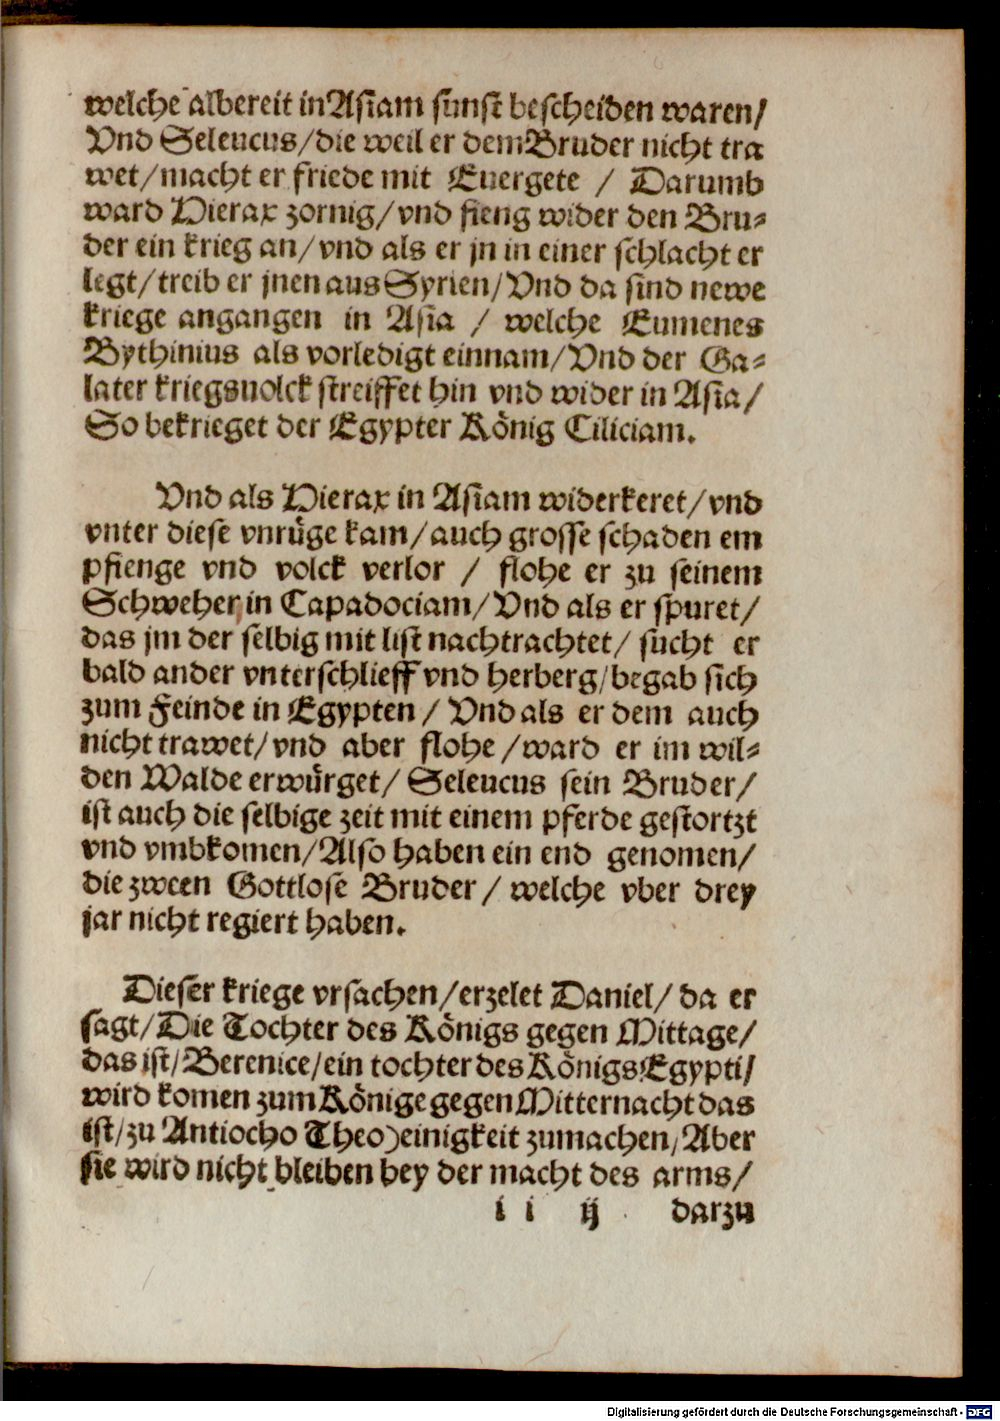 welche albereit in Asiam sunst bescheiden waren/
Vnd Seleucus/die weil er dem Bruder nicht tra
wet/macht er friede mit Euergete / Darumb
ward Hierax zornig/vnd fieng wider den Bru⸗
der ein krieg an/vnd als er jn in einer schlacht er
legt/treib er jnen aus Syrien/Vnd da sind newe
kriege angangen in Asia / welche Eumenes
Bythinius als vorledigt einnam/Vnd der Ga⸗
later kriegsuolck streiffet hin vnd wider in Asia/
So bekrieget der Egypter König Ciliciam.
Vnd als Hierax in Asiam widerkeret/vnd
vnter diese vnrüge kam/auch grosse schaden em
pfienge vnd volck verlor / flohe er zu seinem
Schweher in Capadociam/Vnd als er spuret/
das jm der selbig mit list nachtrachtet/ sucht er
bald ander vnterschlieff vnd herberg/begab sich
zum Feinde in Egypten / Vnd als er dem auch
nicht trawet/vnd aber flohe /ward er im wil⸗
den Walde erwürget/ Seleucus sein Bruder/
ist auch die selbige zeit mit einem pferde gestortzt
vnd vmbkomen/Also haben ein end genomen/
die zween Gottlose Bruder / welche vber drey
jar nicht regiert haben.
Dieser kriege vrsachen/erzelet Daniel/ da er
sagt/Die Tochter des Königs gegen Mittage/
das ist/Berenice/ein tochter des Königs Egypti/
wird komen zum Könige gegen Mitternacht das
ist/zu Antiocho Theo)einigkeit zumachen/Aber
sie wird nicht bleiben bey der macht des arms/
i i ij darzu
Digitalisierung gefördert durch die Deutsche Forschungsgemeinschaft - DFG